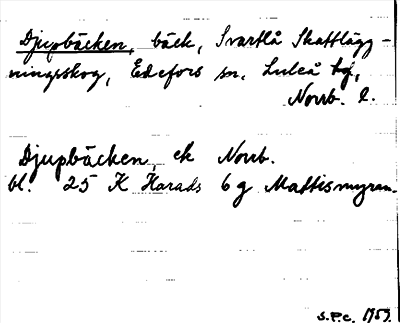 Djupbäcken, bäck, Svartlå Skattlägg-
ningsskog, Edefors sn, Luleå tg,
Norrb. l.
Djupbäcken, ek Norrb.
bl. 25 K Harads 6 g Mattismyran.
S.P.c. 1959.